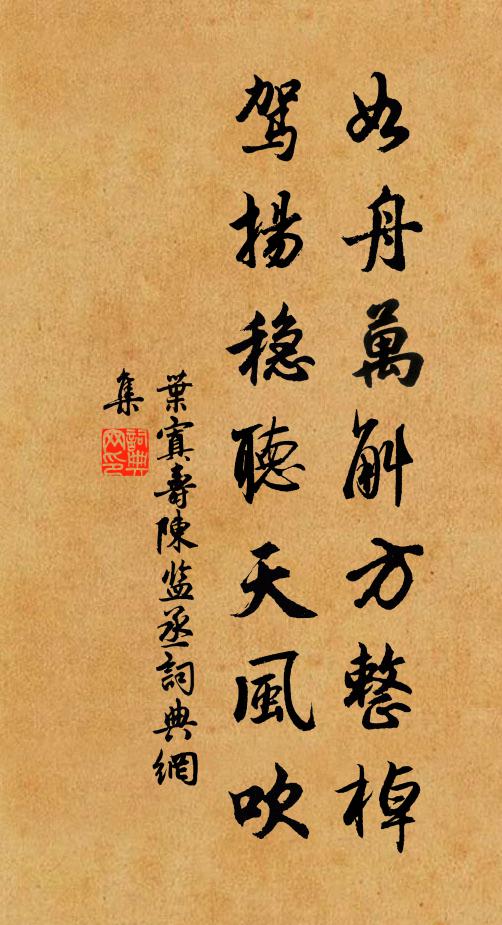 如舟萬斛方整棹
駕揚穩聽天風吹
葉寘壽陳監丞詞典網
集
詞典網印